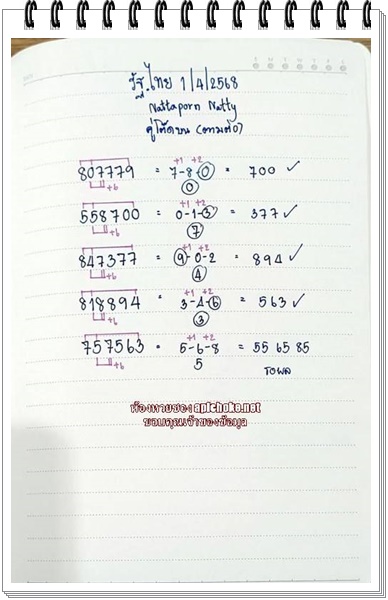 รัฐ.ไทย 1/4/2568
Nattaporn Natty
คู่โต๊ดบน (ตามต่อ)
+1 +2
807779 = 7-8-0 = 700 ✓
+6 0
+1 +2
558700 = 0-1-3 = 377 ✓
+6 7
+1 +2
847377 = 9-0-2 = 894 ✓
+6 4
+1 +2
818894 = 3-4-6 = 563 ✓
+6 3
+1 +2
757563 = 5-6-8 = 55 65 85
+6 5
รอผล
ห้องหวยซอง apichoke.net
ขอบคุณเจ้าของข้อมูล